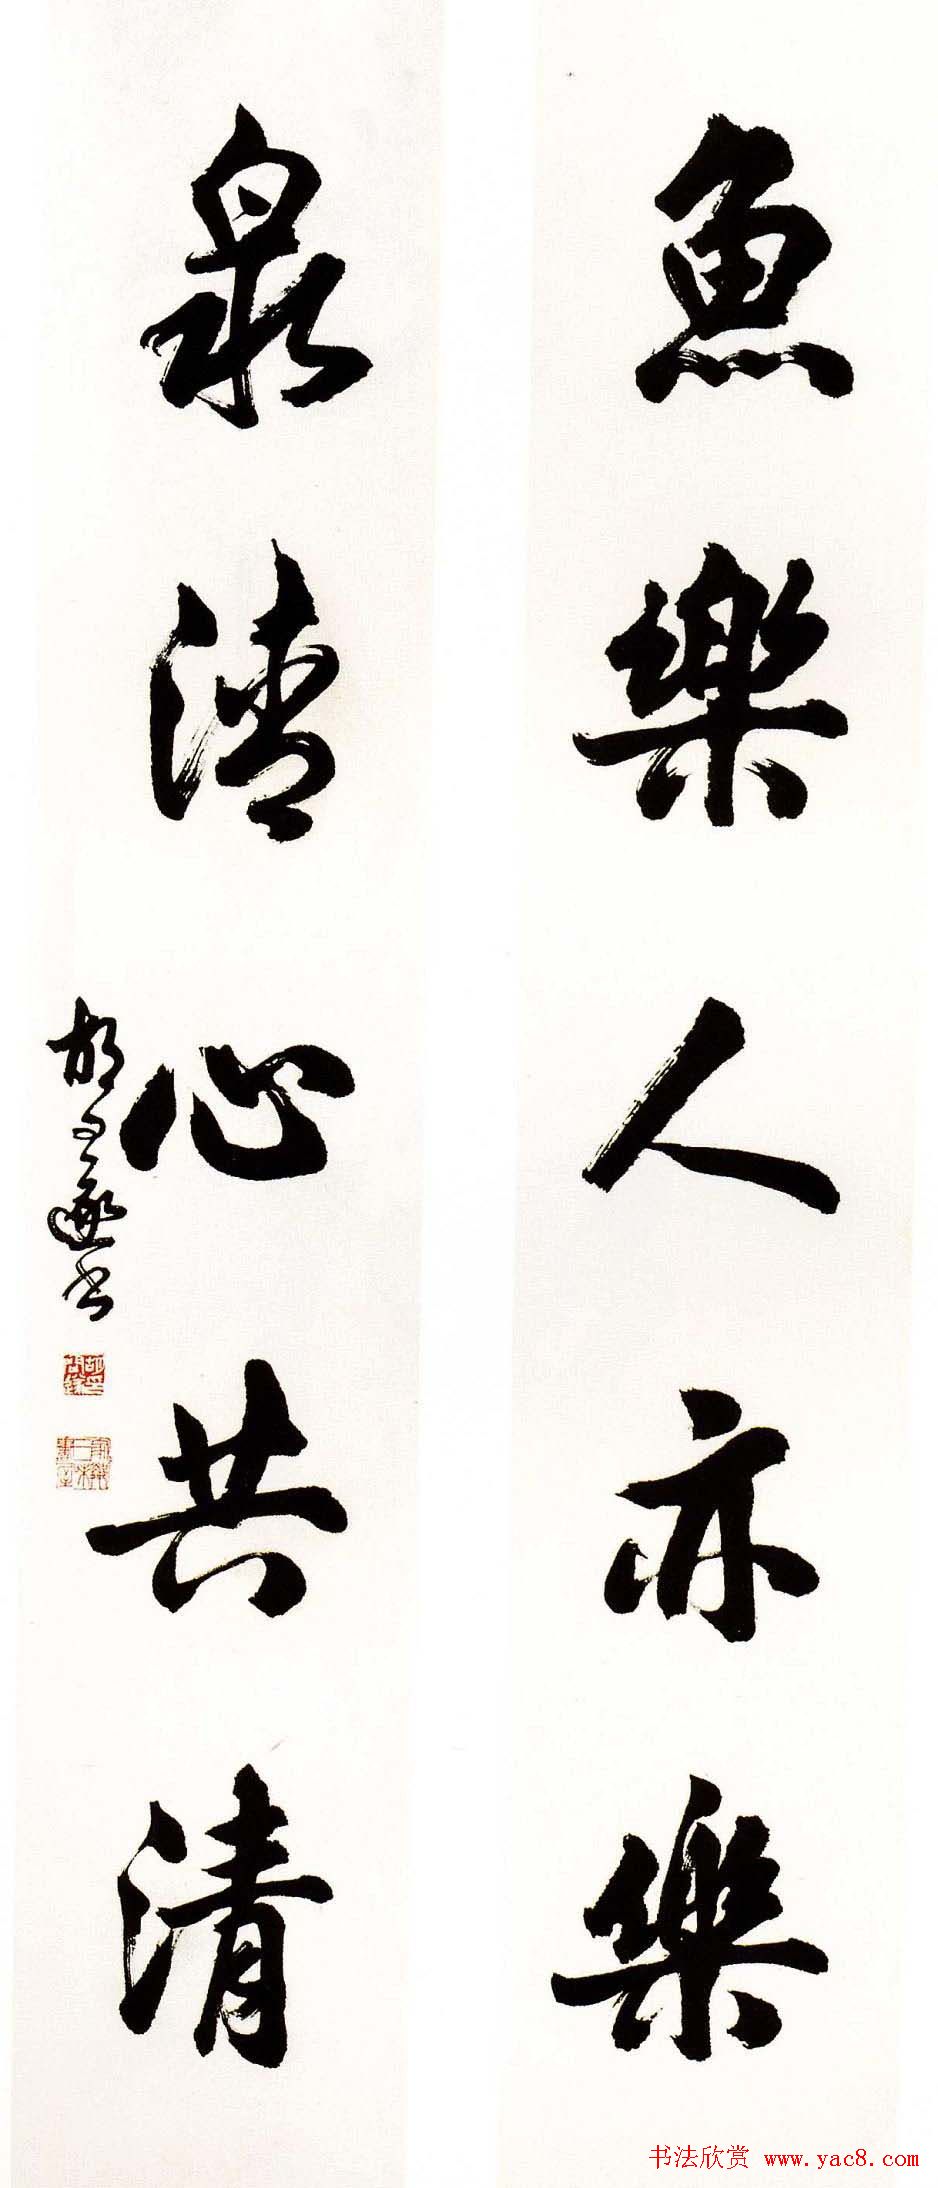 魚樂人亦樂
泉清心共清
胡問遂书
书法欣赏 www.yac8.com